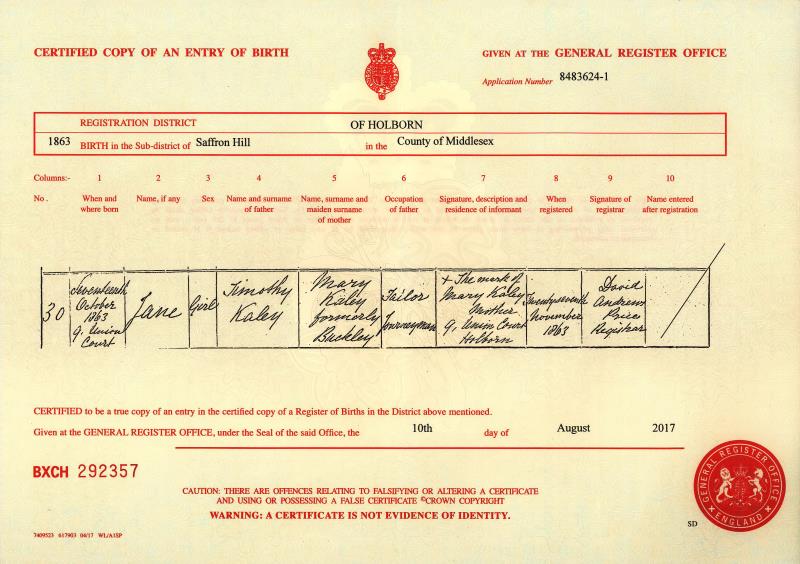 CERTIFIED COPY OF AN ENTRY OF BIRTH
GIVEN AT THE GENERAL REGISTER OFFICE
Application Number 8483624-1
REGISTRATION DISTRICT OF HOLBORN
1863 BIRTH in the Sub-district of Saffron Hill in the County of Middlesex
Columns:- 1 2 3 4 5 6 7 8 9 10
No. When and where born Name, if any Sex Name and surname of father Name, surname and maiden surname of mother Occupation of father Signature, description and residence of informant When registered Signature of registrar Name entered after registration
30
Seventeenth
October
1863
9, Union
Court
Jane
Girl
Timothy
Kaley
Mary
Kaley
formerly
Buckley
Tailor
Journeyman
+ The mark of
Mary Kaley
Mother
9, Union Court
Holborn
Twenty seventh
November
1863
David
Andrew
Price
Registrar
CERTIFIED to be a true copy of an entry in the certified copy of a Register of Births in the District above mentioned.
Given at the GENERAL REGISTER OFFICE, under the Seal of the said Office, the 10th day of August 2017
BXCH 292357
CAUTION: THERE ARE OFFENCES RELATING TO FALSIFYING OR ALTERING A CERTIFICATE
AND USING OR POSSESSING A FALSE CERTIFICATE ©CROWN COPYRIGHT
WARNING: A CERTIFICATE IS NOT EVIDENCE OF IDENTITY.
GENERAL REGISTER OFFICE
ENGLAND
SD
7409523 617903 04/17 WL/A1SP